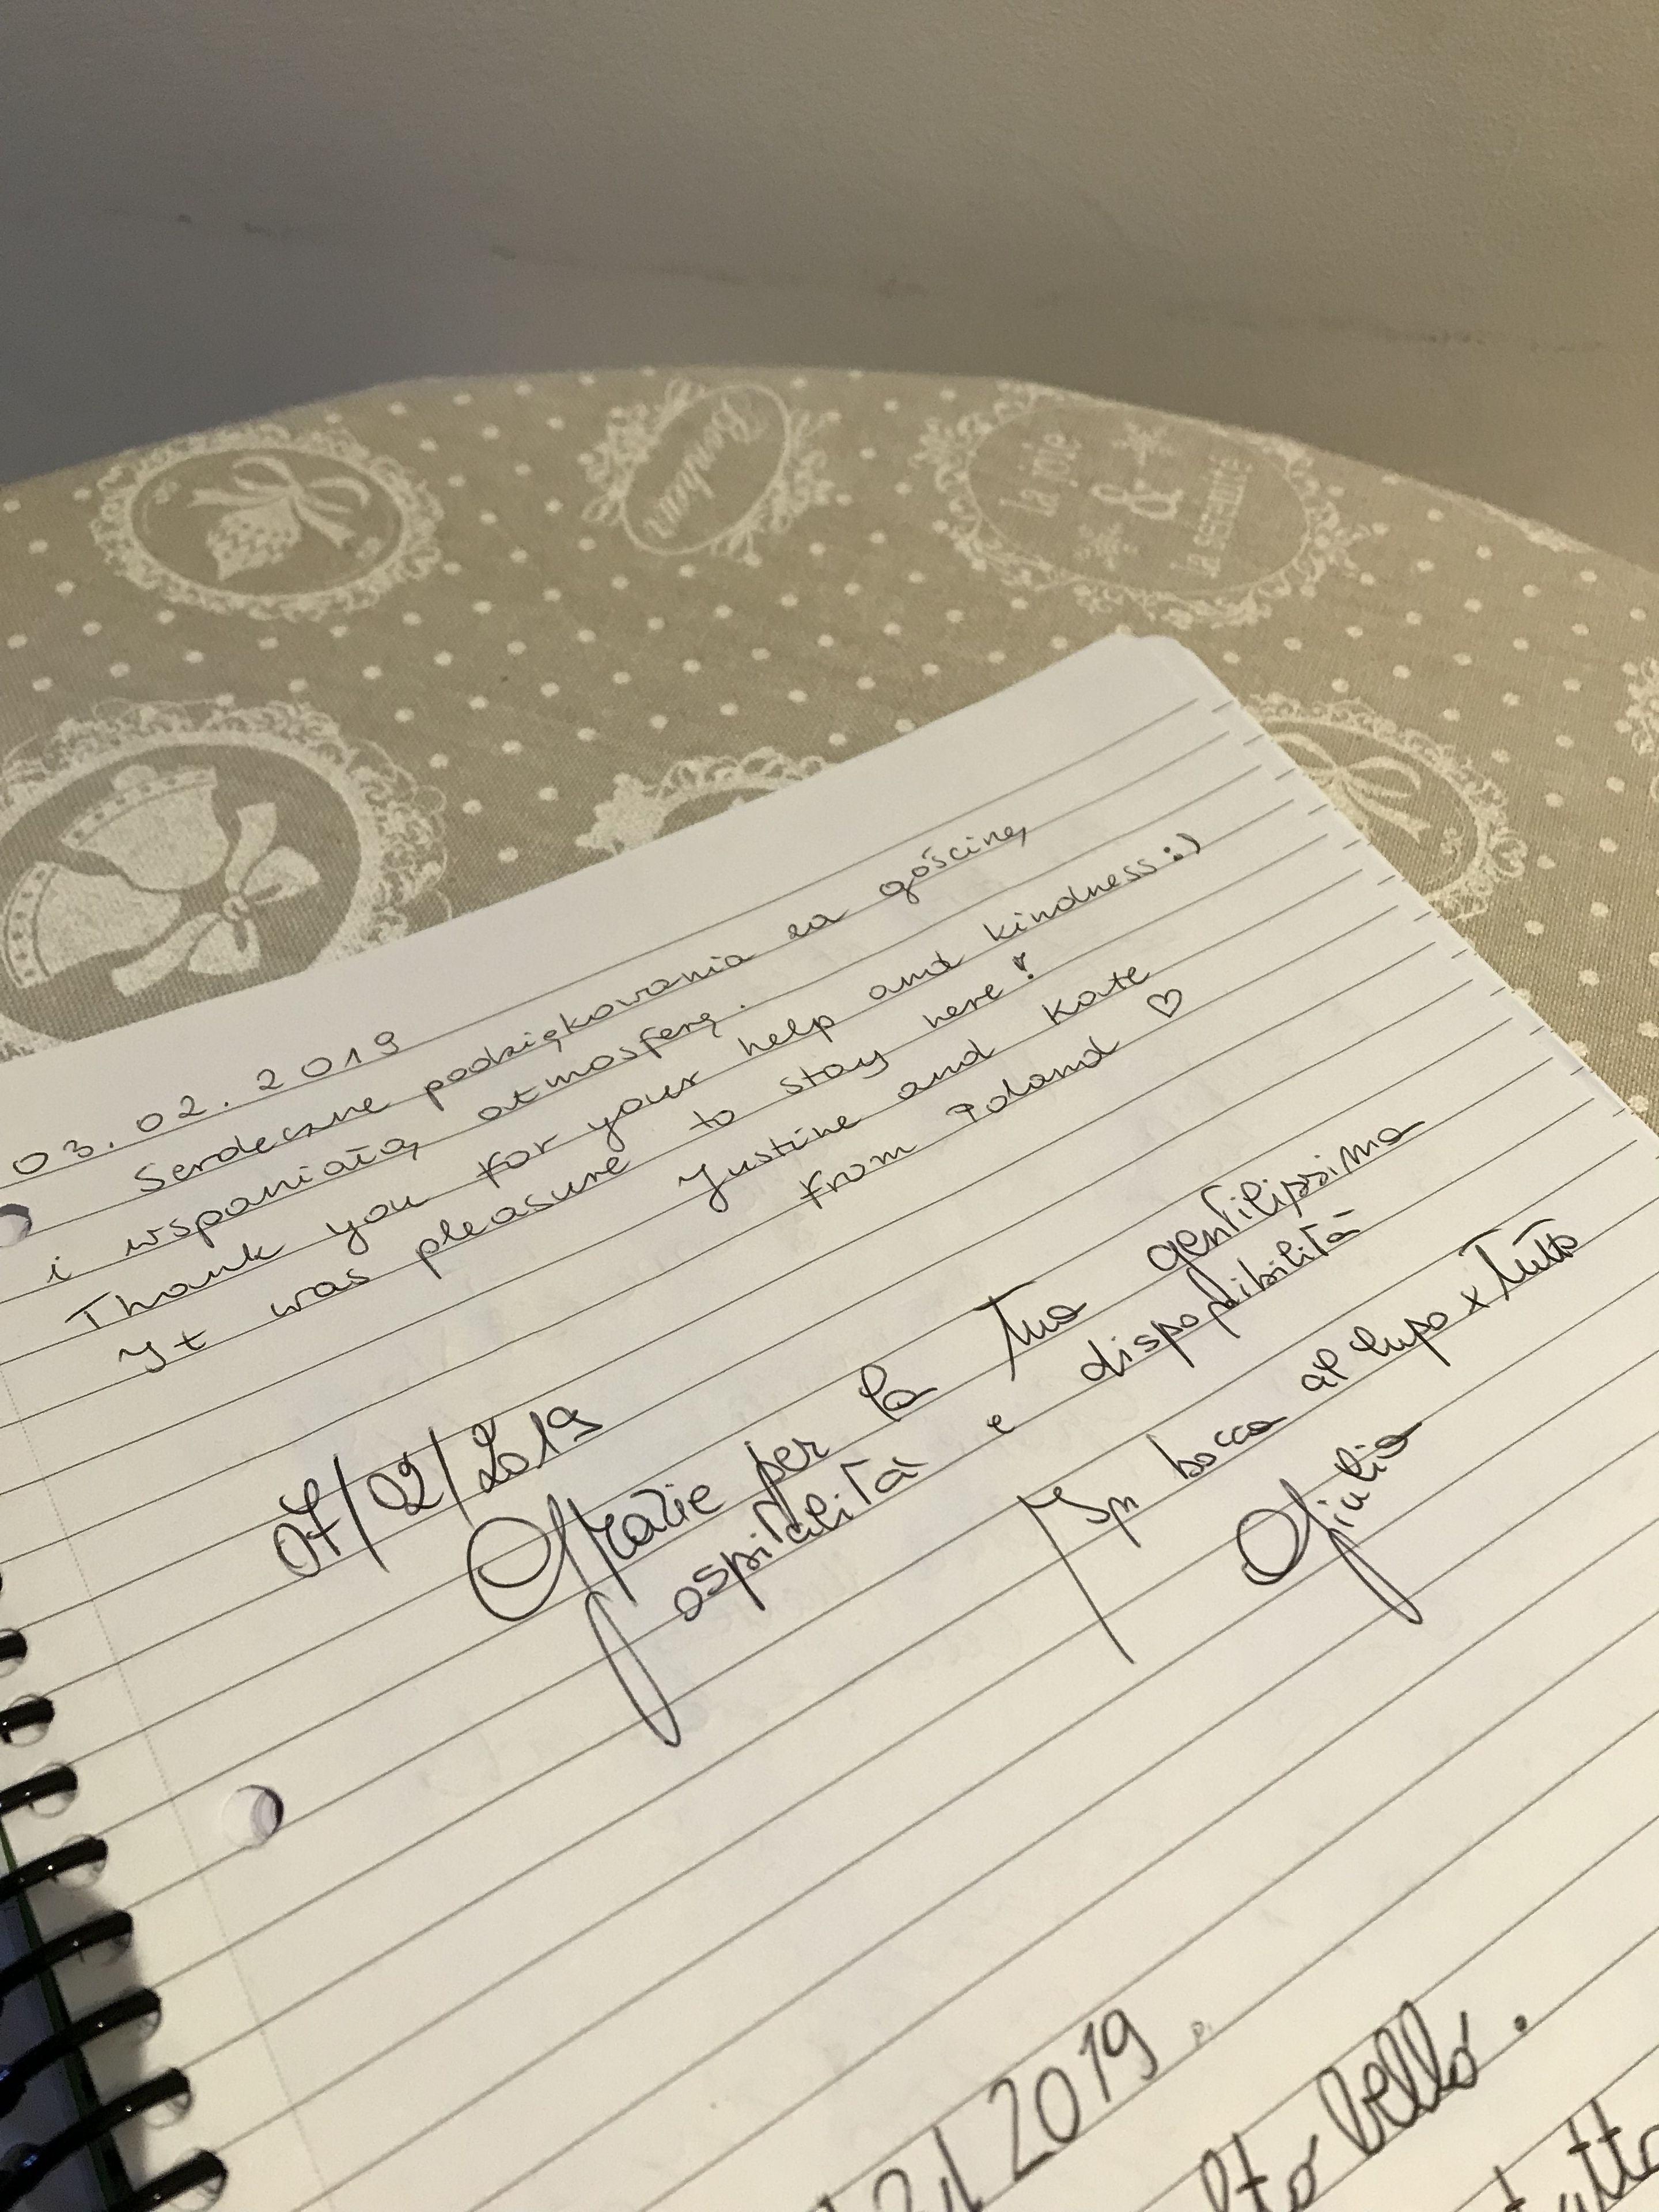 Bonheur
la joie
&
la sérénité
03.02.2019
Serdeczne podziękowania za gościnę
i wspaniałą atmosferę.
Thank you for your help and kindness :)
It was pleasure to stay here!
Justine and Kate
from Poland ♡
07/02/2019
Grazie per la tua gentilissima
ospitalità e disponibilità
In bocca al lupo x tutto
Giulia
2019
bello.